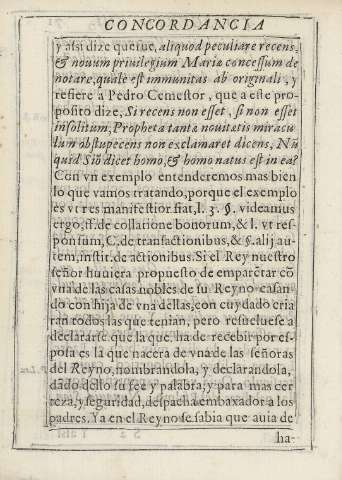 CONCORDANCIA
y assi dize que fue, aliquod peculiare recens,
& nouum priuilegium Mariæ concessum de
notare, quale est immunitas ab originali, y
refiere à Pedro Cemestor, que a este pro-
posito dize, Si recens non esset, si non esset
insolitum, Propheta tantæ nouitatis miracu
lum obstupecens non exclamaret dicens, Nũ
quid Siõ dicet homo, & homo natus est in ea?
Con vn exemplo entenderemos mas bien
lo que vamos tratando, porque el exemplo
es vt res manifestior fiat, l. 3. §. videamus
ergo, ff. de collatione bonorum, & l. vt res-
ponsum, C. de transactionibus, & §. alij au-
tem, instit. de actionibus. Si el Rey nuestro
señor huuiera propuesto de emparẽtar cõ
vna de las casas nobles de su Reyno casan-
do con hija de vna dellas, con cuydado cria
ran todos las que tenian, pero resueluese a
declararse que la que, ha de recebir por es-
posa es la que nacera de vna de las señoras
del Reyno, nombrandola, y declarandola,
dãdo dello su fee y palabra; y para mas cer
teza, y seguridad, despacha embaxador a los
padres. Ya en el Reyno se sabia que auia de
ha-